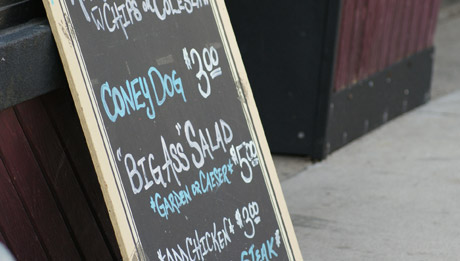 w/ CHIPS or COLESLAW
CONEY DOG $3.00
"BIG ASS" SALAD
*GARDEN OR CAESER* $5.00
*ADD CHICKEN* $3.00
STEAK